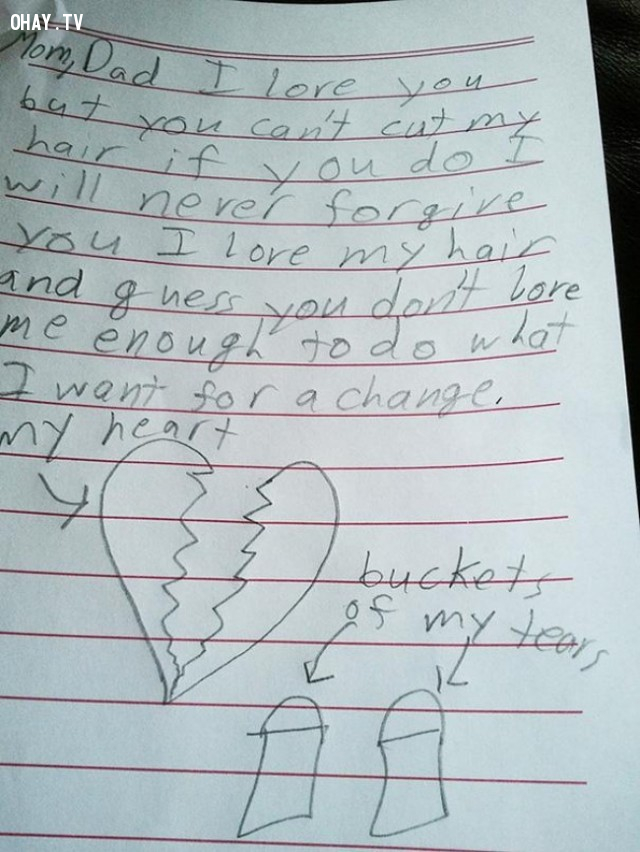 OHAY.TV
Mom, Dad I love you
but you can't cut my
hair if you do I
will never forgive
you I love my hair
and guess you don't love
me enough to do what
I want for a change.
my heart
buckets
of my tears